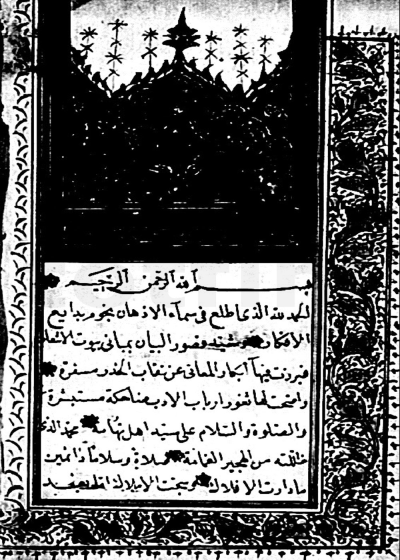 بسم الله الرحمن الرحيم
الحمد لله الذى اطلع فى سماء الاذهان نجوم بدايع
الافكار وشيد قصور البيان بمبانى بيوت الاشعار
فبرزت فيها ابكار المعانى عن نقاب الخدور مسفرة
واضحت لها ثغور ارباب الادب ضاحكة مستبشرة
والصلوة والسلام على سيد اهل تهامة محمد الذى
ظللته من الهجير الغمامة صلاة وسلاما دائمين
ما دارت الافلاك وسبحت الاملاك